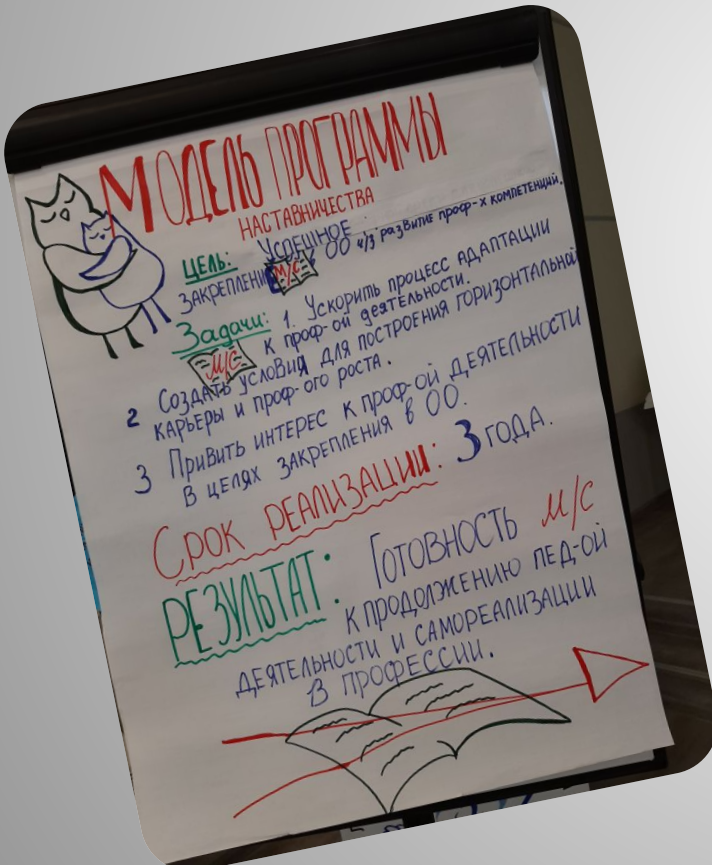 МОДЕЛЬ ПРОГРАММЫ
НАСТАВНИЧЕСТВА
ЦЕЛЬ: УСПЕШНОЕ
ЗАКРЕПЛЕНИЕ М/С ОО ч/з развитие проф-х компетенций.
Задачи: 1. Ускорить процесс адаптации
М/С к проф-ой деятельности.
2 Создать условия для построения горизонтальной
карьеры и проф-ого роста.
3 Привить интерес к проф-ой деятельности
в целях закрепления в ОО.
Срок реализации: 3 года.
РЕЗУЛЬТАТ: Готовность М/С
к продолжению пед-ой
деятельности и самореализации
в профессии.